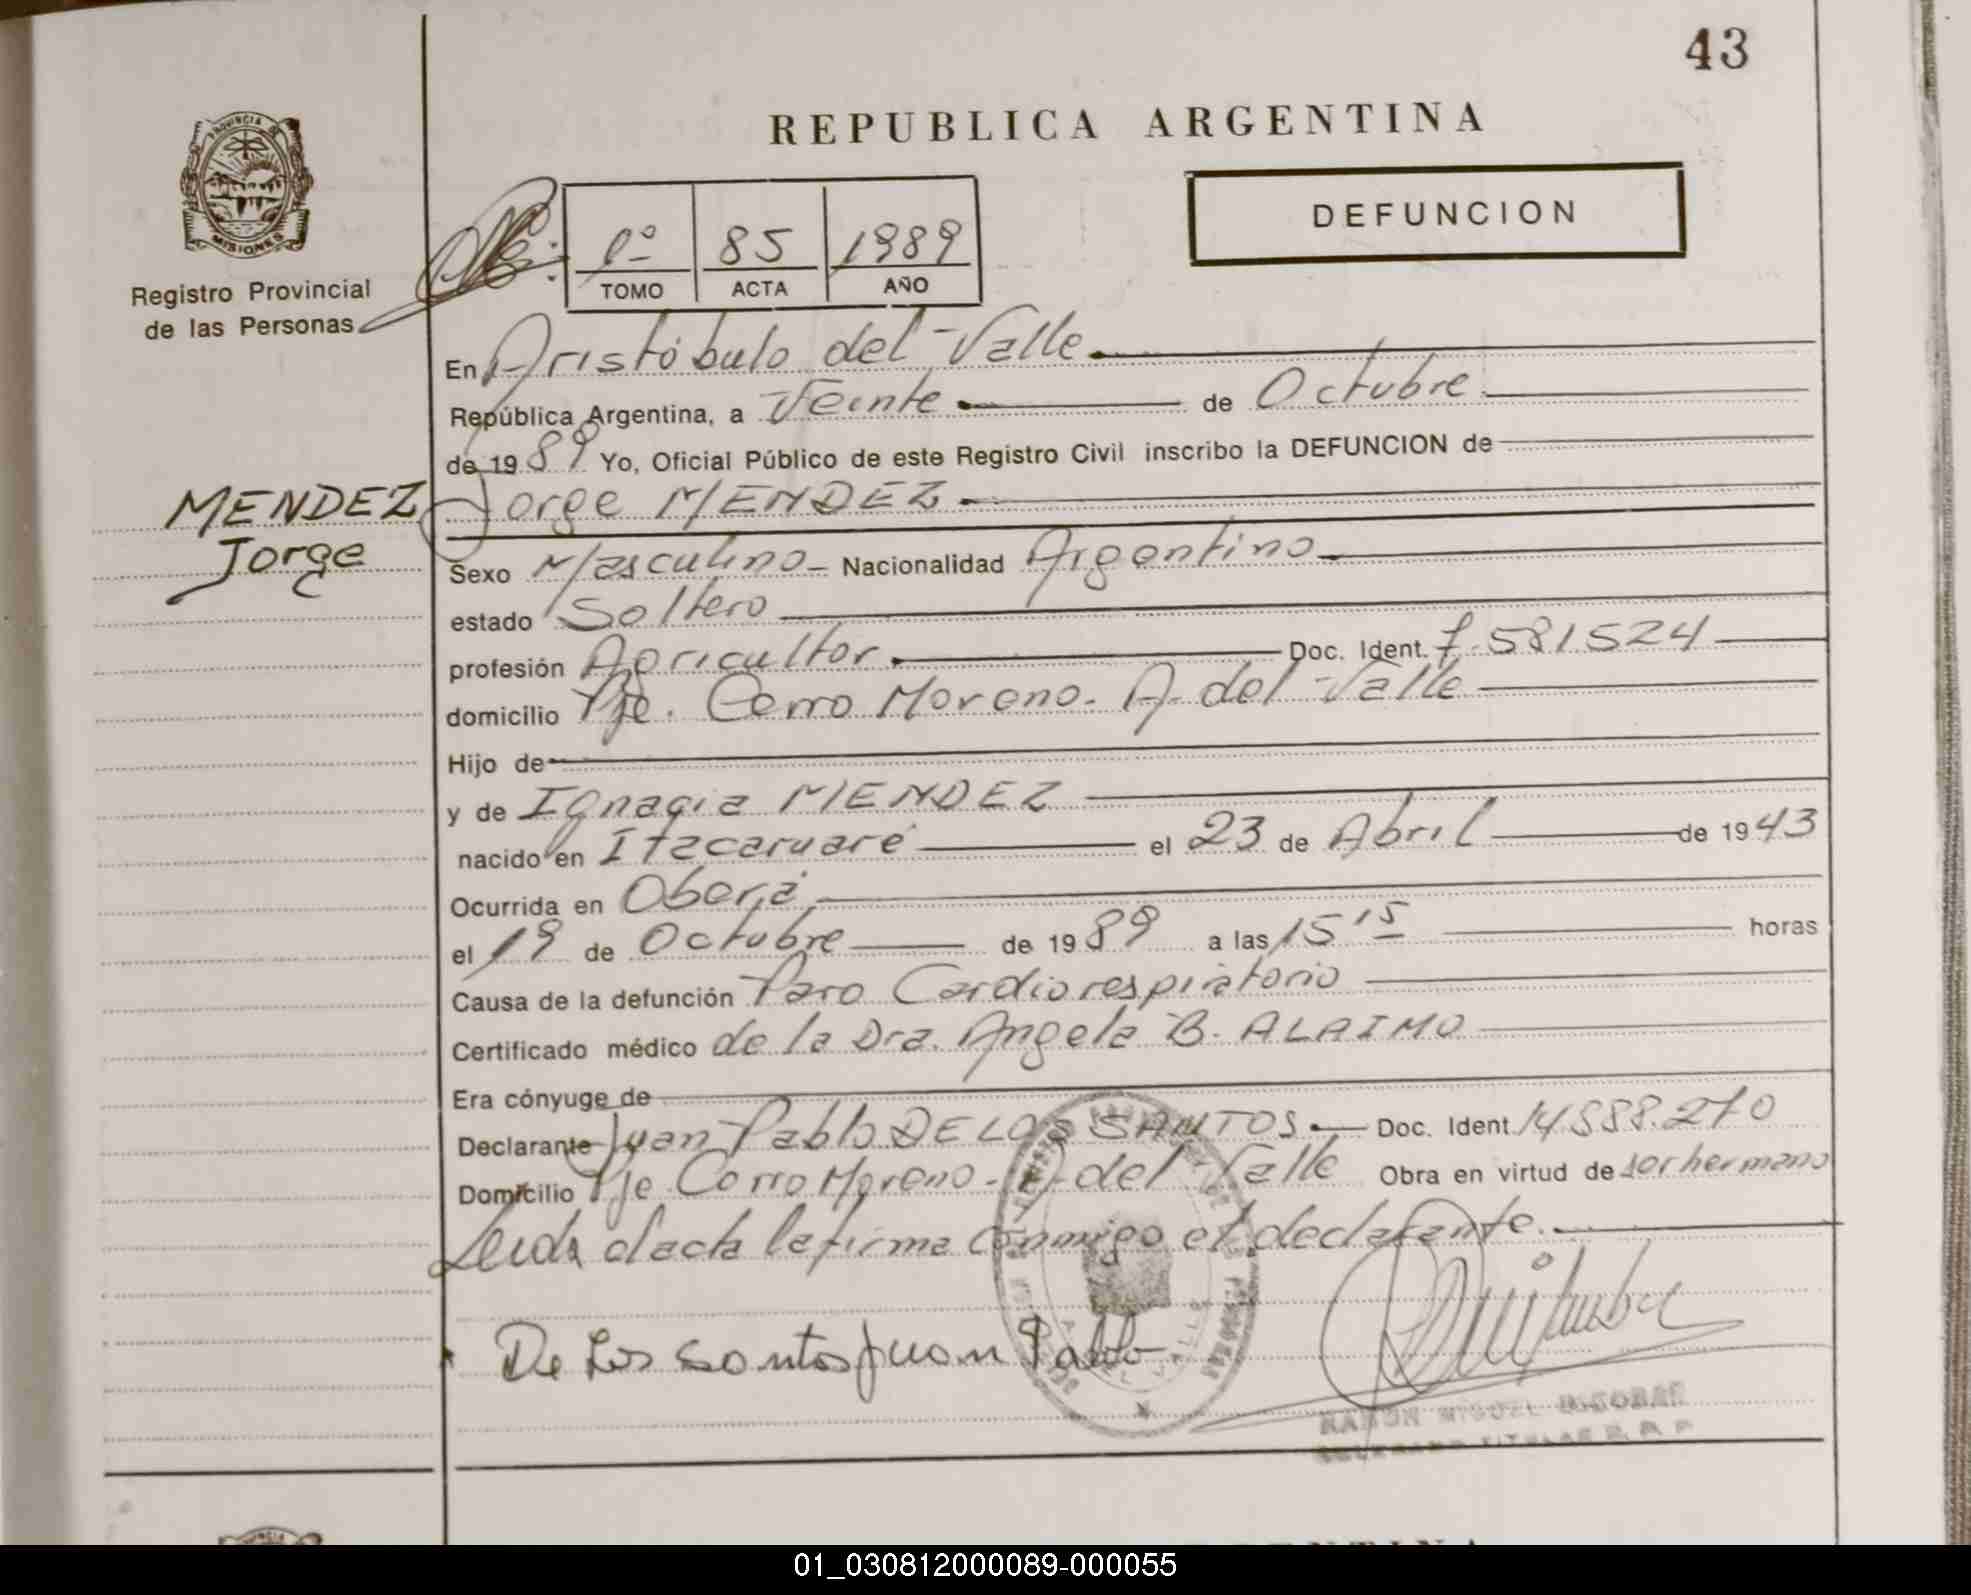 43
REPUBLICA ARGENTINA
PROVINCIA DE
MISIONES
Registro Provincial
de las Personas
1º 85 1989
TOMO ACTA AÑO
DEFUNCION
En Aristóbulo del Valle
República Argentina, a Veinte de Octubre
de 1989 Yo, Oficial Público de este Registro Civil inscribo la DEFUNCION de
MENDEZ
Jorge
Jorge MENDEZ
Sexo Masculino Nacionalidad Argentino
estado Soltero
profesión Agricultor Doc. Ident. 7.581.524
domicilio Pje. Cerro Moreno. A. del Valle
Hijo de
y de Ignacia MENDEZ
nacido en Itacaruaré el 23 de Abril de 1943
Ocurrida en Oberá
el 19 de Octubre de 1989 a las 15 15 horas
Causa de la defunción Paro Cardiorespiratorio
Certificado médico de la Dra. Angela B. ALAIMO
Era cónyuge de
Declarante Juan Pablo DE LOS SANTOS Doc. Ident. 14.888.270
Domicilio Pje Cerro Moreno - A. del Valle Obra en virtud de ser hermano
Leida el acta la firma conmigo el declarante.
De Los Santos Juan Pablo
RAMON MIGUEL
01_030812000089-000055